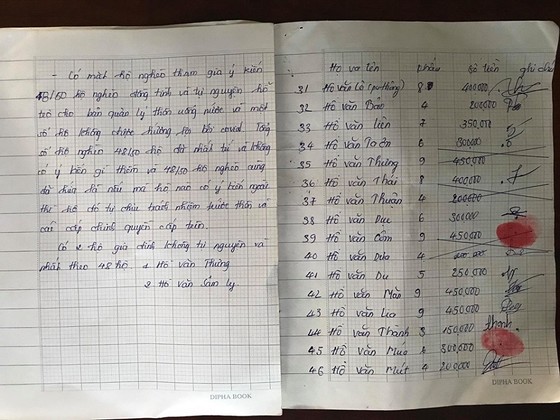 - Có mặt hộ nghèo tham gia ý kiến
48/50 hộ nghèo đồng tình và tự nguyện hỗ
trợ cho ban quản lý thôn uống nước và một
số hộ không được hưởng hỗ trợ covid Tổng
số hộ nghèo 48/50 hộ đã nhất trí và không
có ý kiến gì thêm và 48/50 hộ nghèo cũng
đã hứa là nếu mà hộ nào có ý kiến ngoài
thì hộ đó tự chịu trách nhiệm trước thôn và
các cấp chính quyền cấp trên.
Có 2 hộ gia đình không tự nguyện và
nhất theo 48 hộ 1 Hồ Văn Thưng
2 Hồ Văn Sam Ly
DIPHA BOOK
Hồ và tên phẩu số tiền ghi chú
31 Hồ Văn Lả 8 400,000
32 Hồ Văn Bao 4 200,000
33 Hồ Văn Liên 7 350,000
34 Hồ Văn Ta Ơn 6 300,000
35 Hồ Văn Thưng 9 450,000
36 Hồ Văn Thái 8 400,000
37 Hồ Văn Thuần 4 200,000
38 Hồ Văn Dục 6 300,000
39 Hồ Văn Côm 9 450,000
40 Hồ Văn Dưa 4
41 Hồ Văn Du 5 250,000
42 Hồ Văn Mằn 9 450,000
43 Hồ Văn Lua 9 450,000
44 Hồ Văn Thanh 3 150,000 thanh
45 Hồ Văn 300,000
46 Hồ Văn Mút 4 200,000
DIPHA BOOK